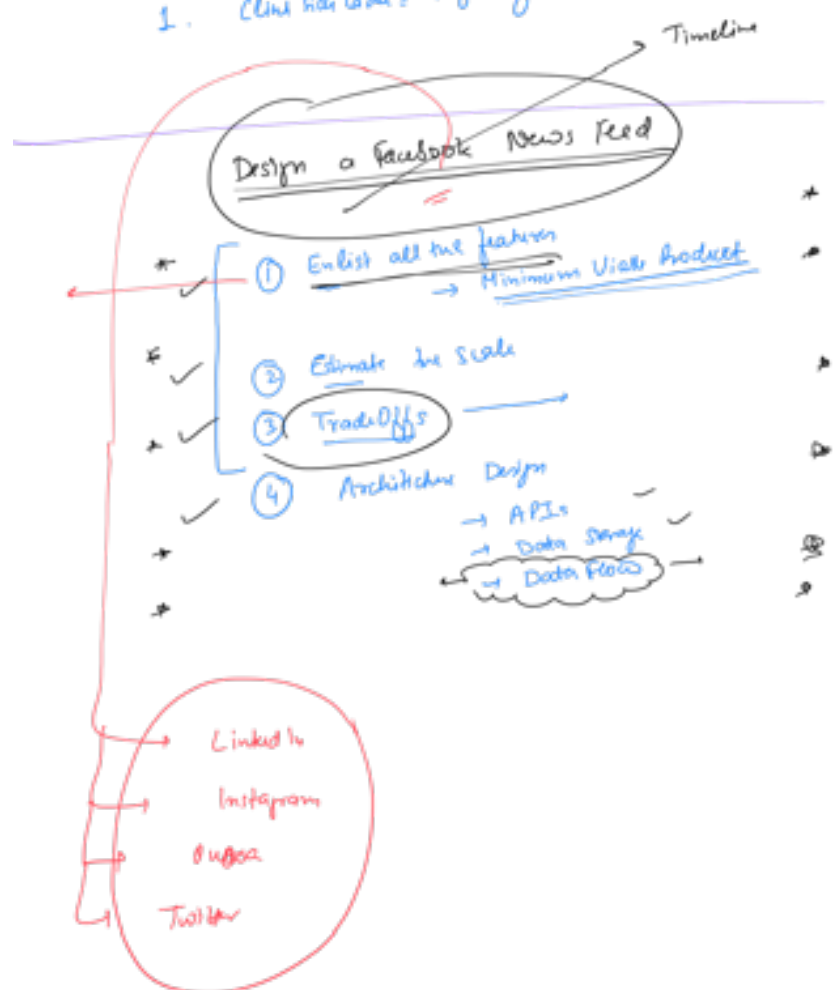 1.
Timeline
Design a Facebook News Feed
1 Enlist all the features
→ Minimum Viable Product
2 Estimate the Scale
3 TradeOffs
4 Architecture Design
→ APIs
→ Data Storage
→ Data Flow
LinkedIn
Instagram
Twitter